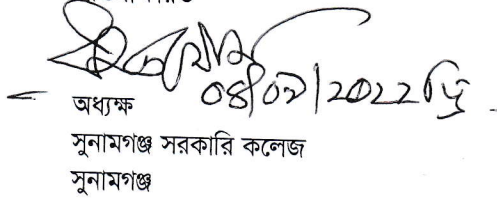 ০৪/০৯/২০২২খ্রি.
অধ্যক্ষ
সুনামগঞ্জ সরকারি কলেজ
সুনামগঞ্জ